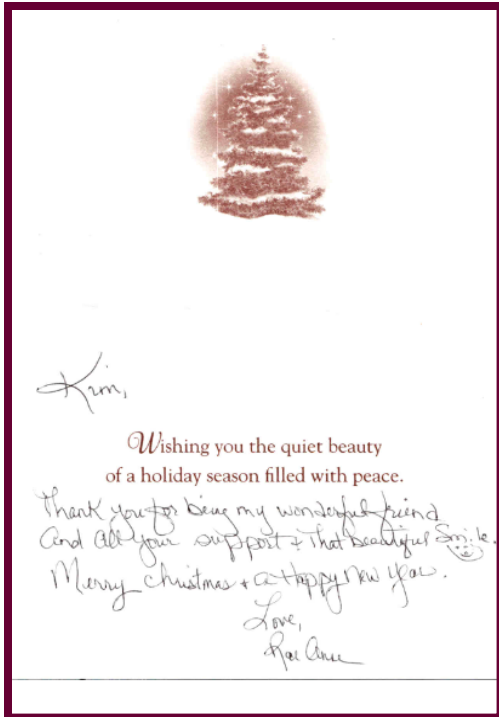 Kim,
Wishing you the quiet beauty
of a holiday season filled with peace.
Thank you for being my wonderful friend
And all your support + that beautiful Smile.
Merry Christmas + a Happy New Year.
Love,
Rae Anne